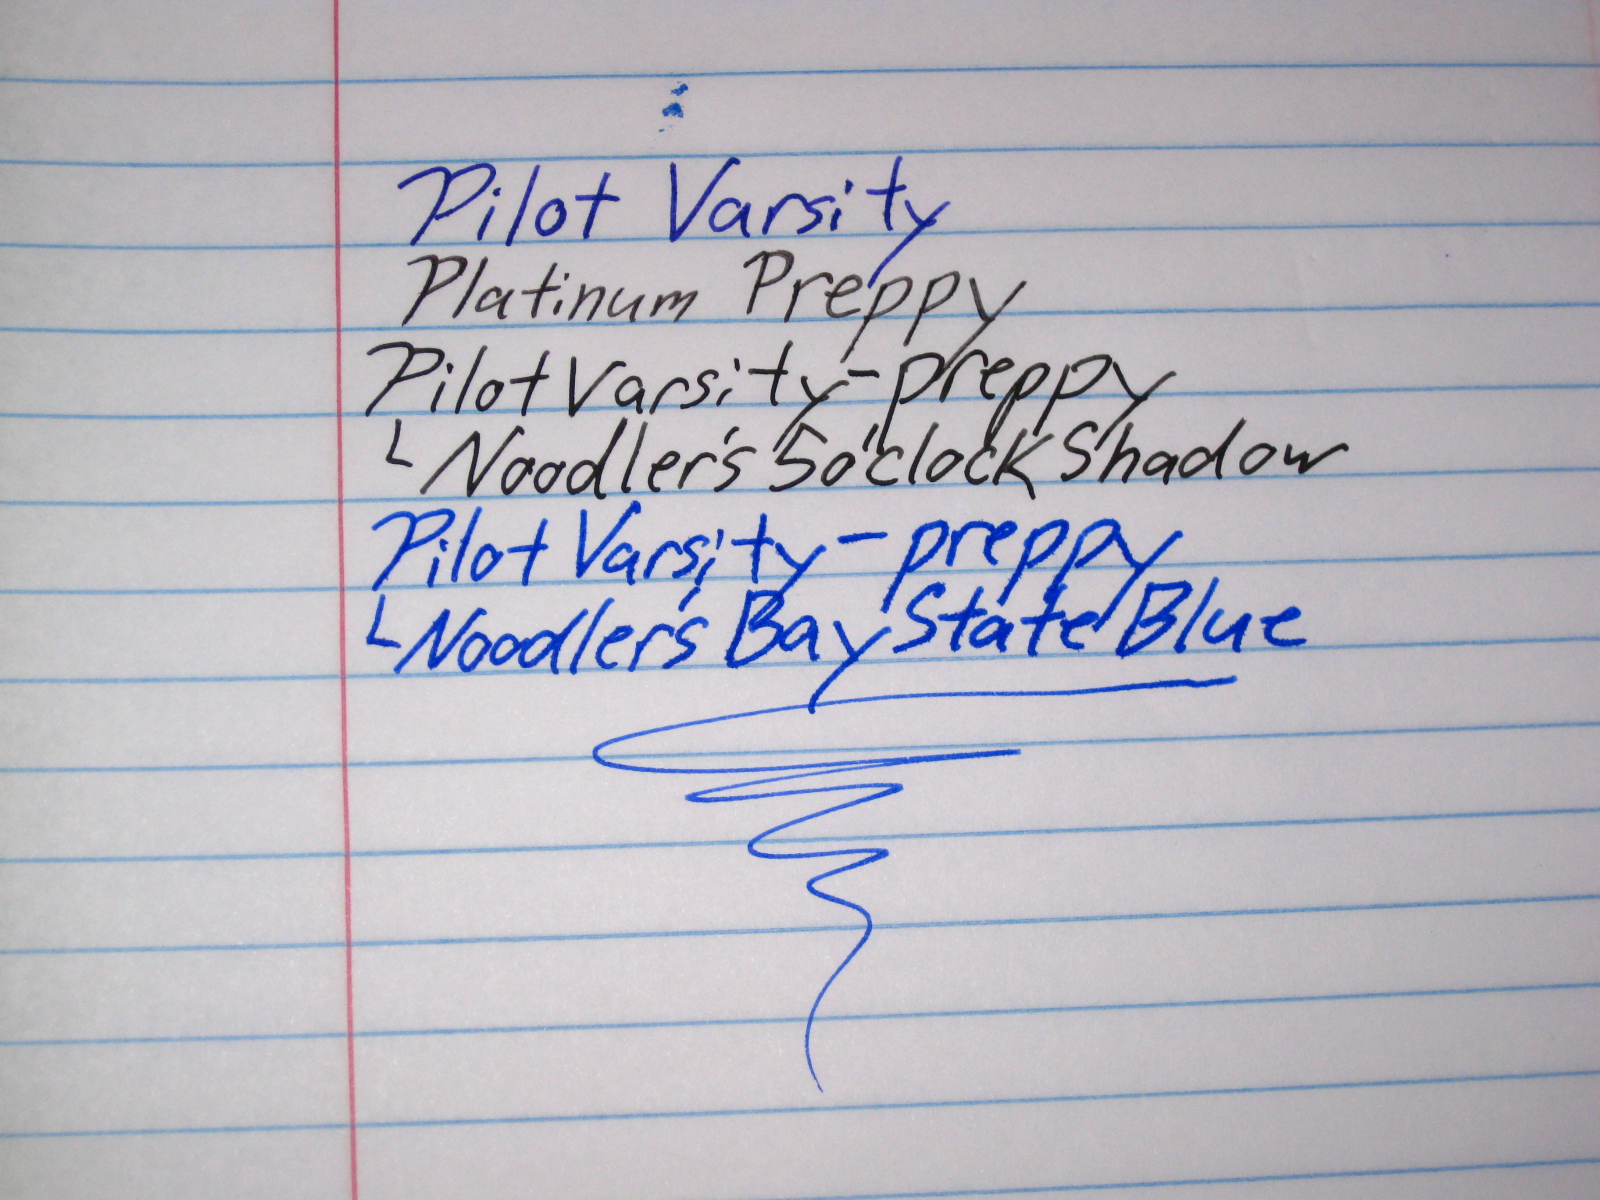 Pilot Varsity
Platinum Preppy
Pilot Varsity-preppy
└ Noodler's 5o'clock Shadow
Pilot Varsity-preppy
└ Noodler's Bay State Blue